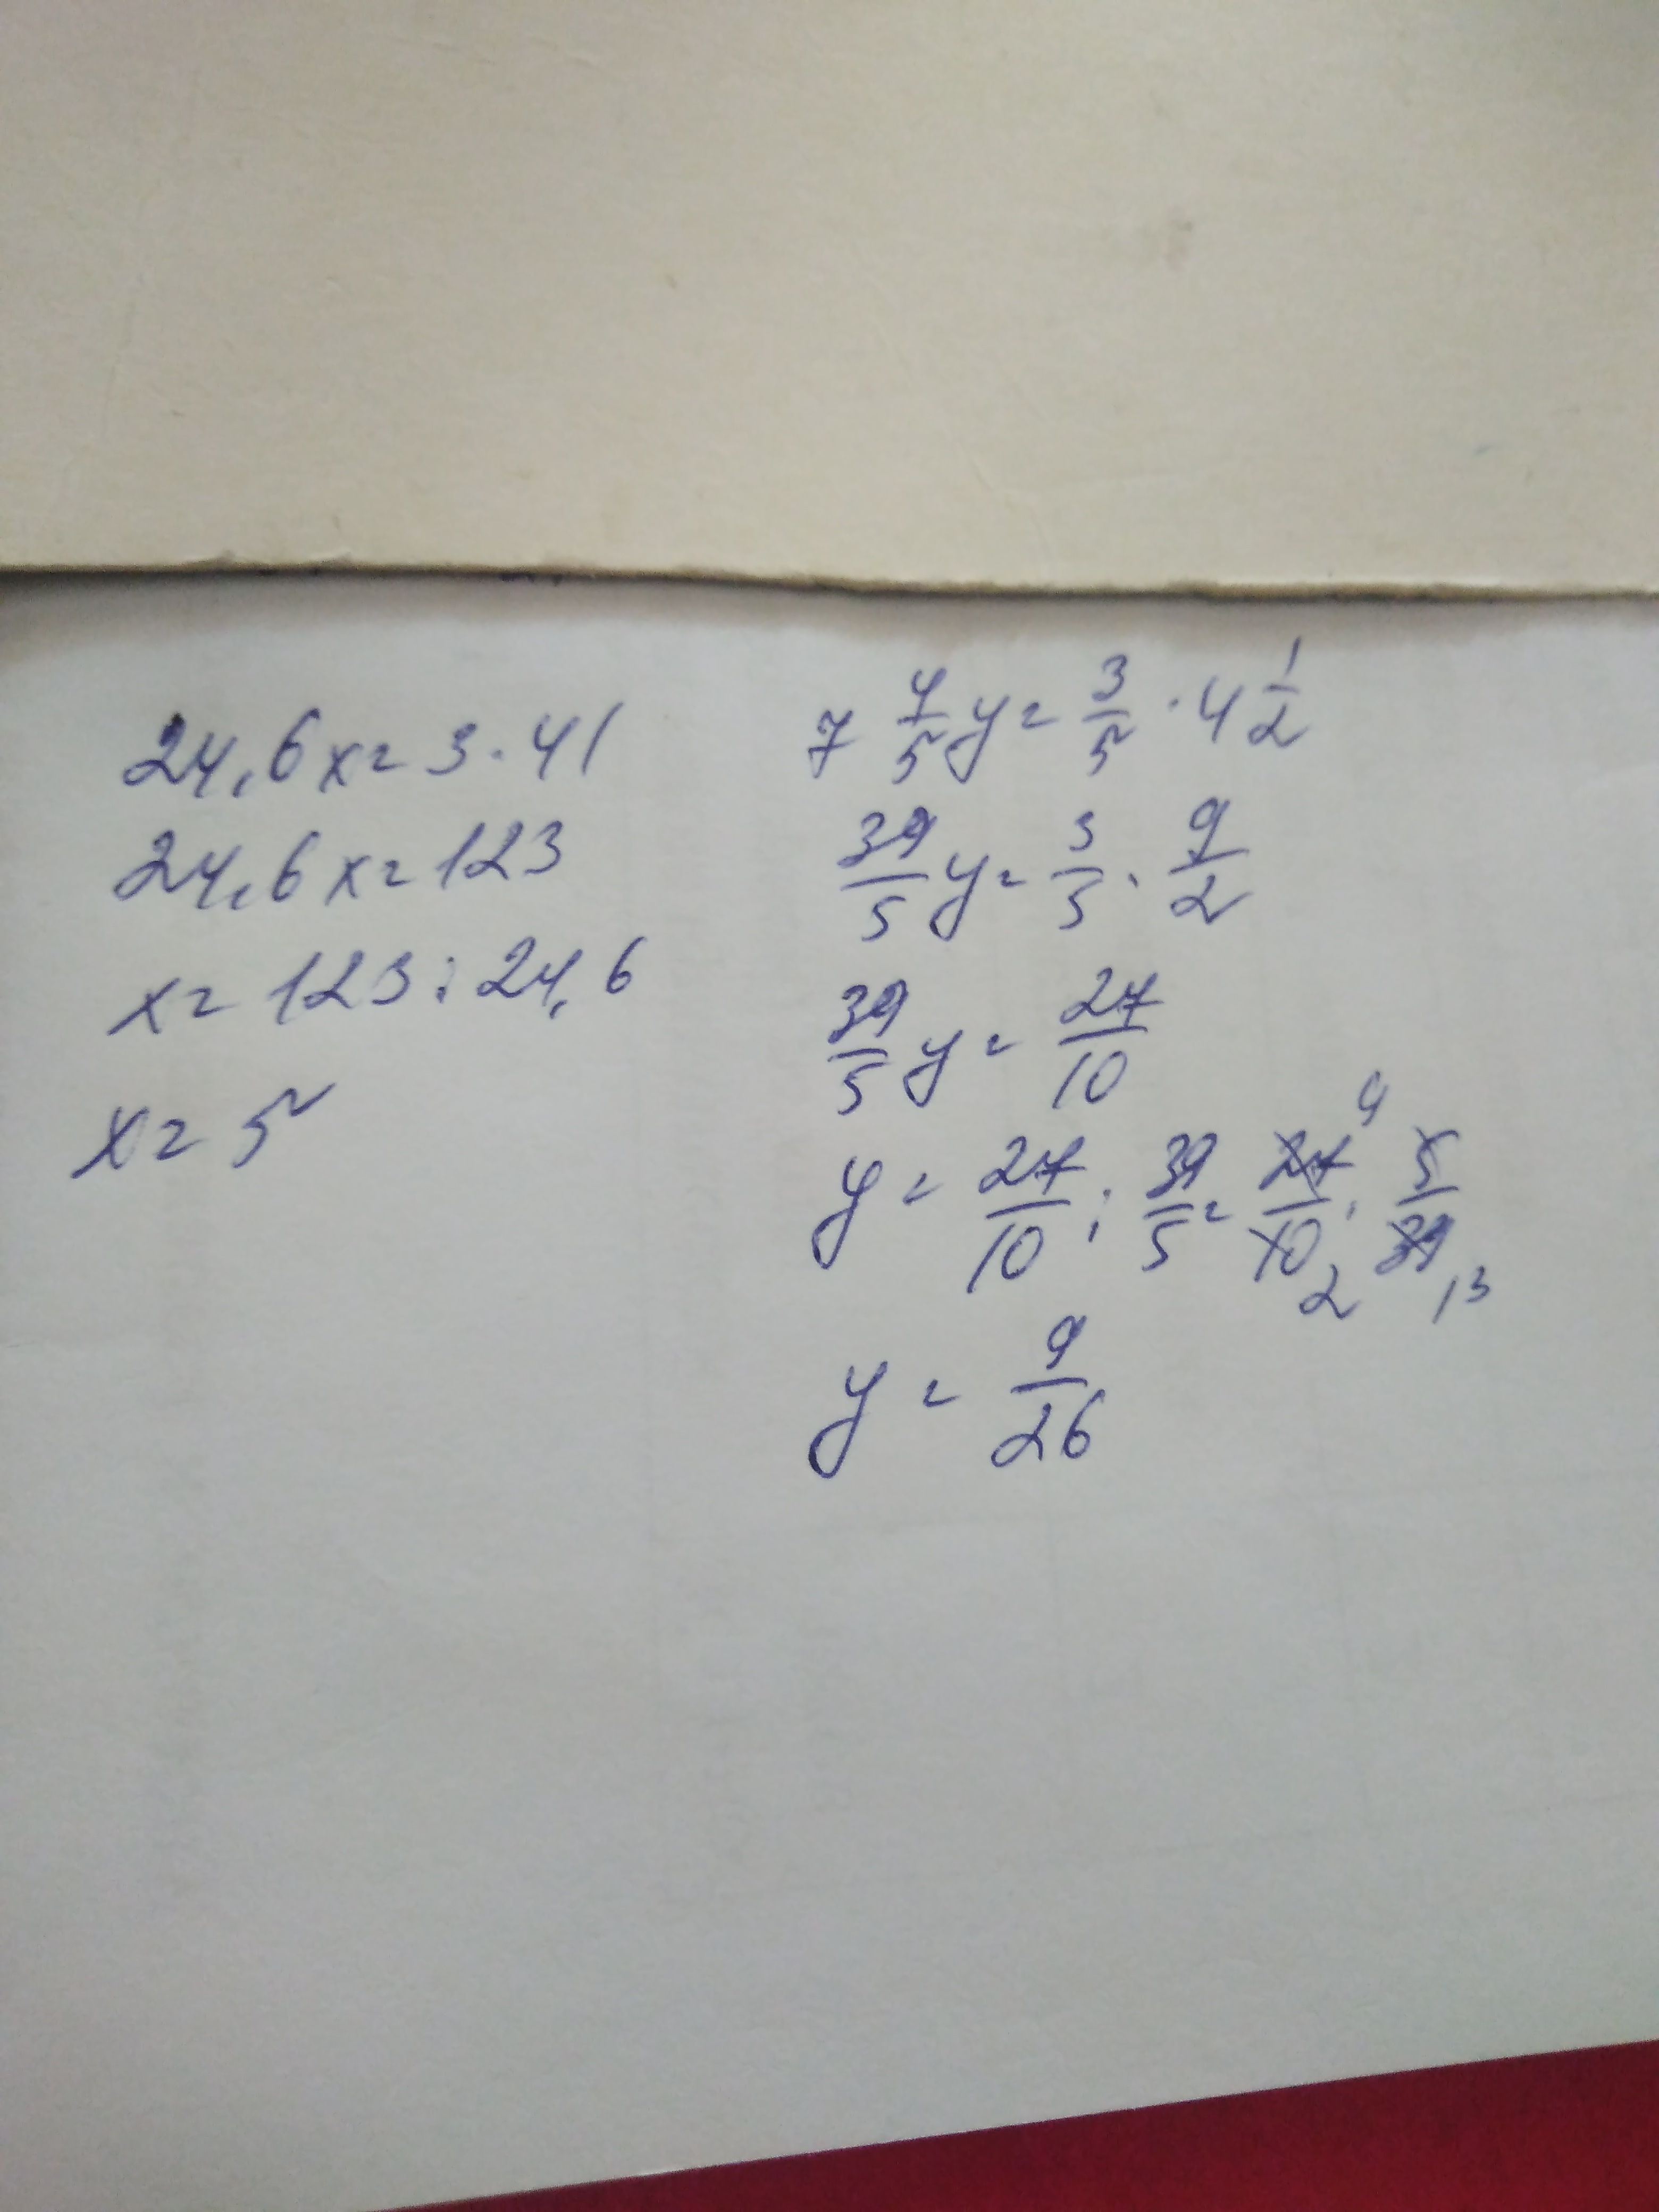 24,6x=3·41
24,6x=123
x=123:24,6
x=5
7 4/5 y = 3/5 · 4 1/2
39/5 y = 3/5 · 9/2
39/5 y = 27/10
y = 27/10 : 39/5 = 27/10 · 5/39 9 2 13
y = 9/26